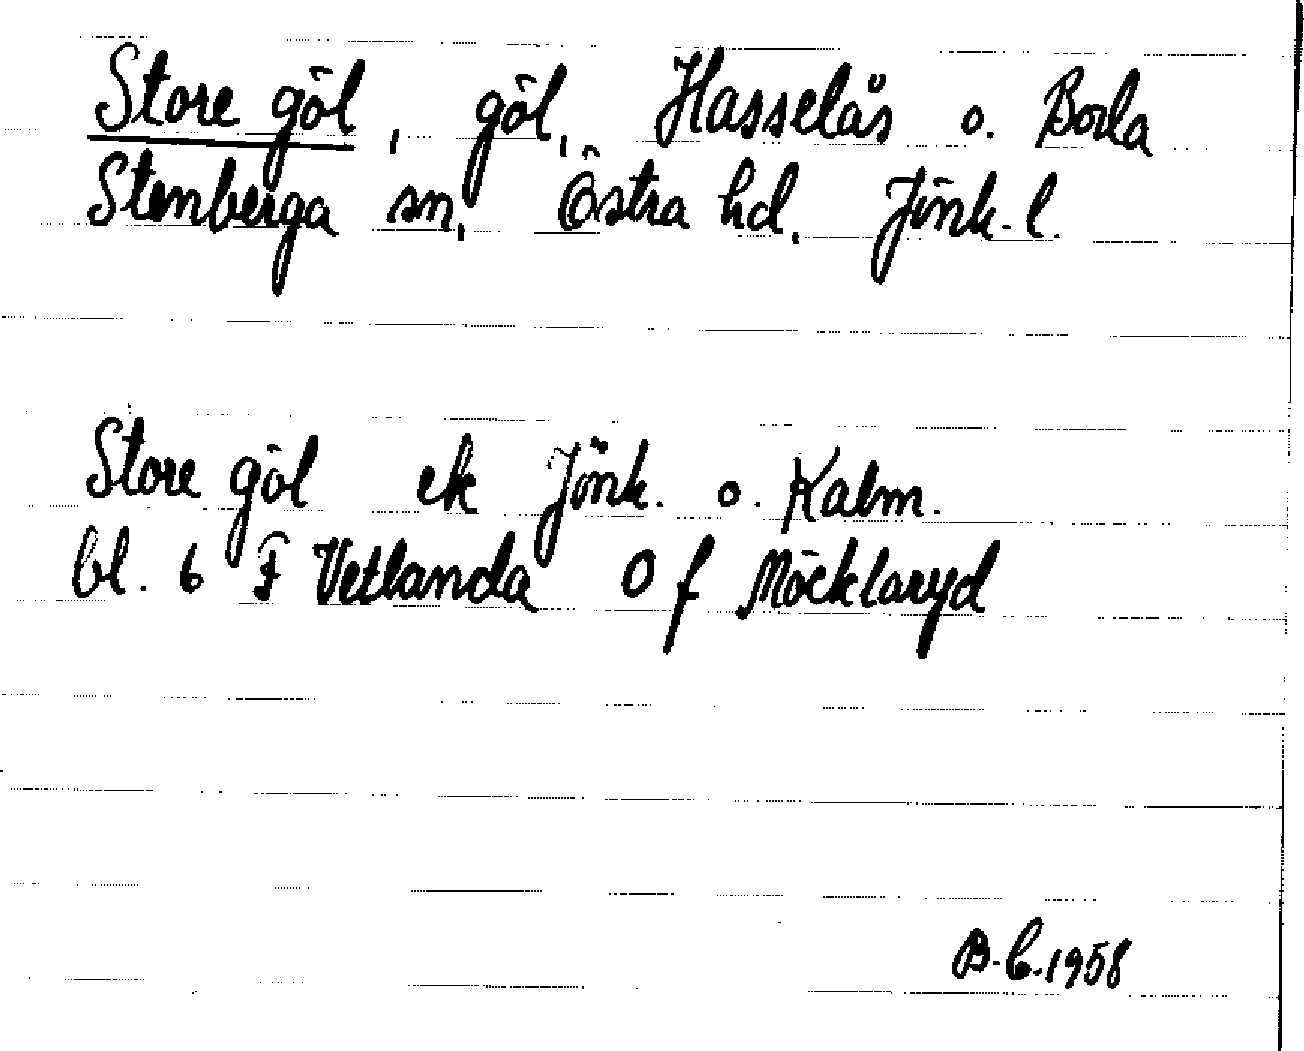 Store göl, göl, Hasselås o. Boda
Stenberga sn, Östra hd. Jönk. l.
Store göl ek Jönk. o. Kalm.
bl. 6 F Vetlanda O f Möcklaryd
B. C. 1958